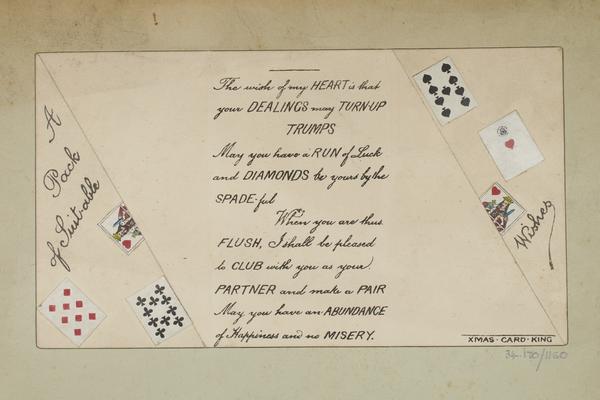 A
Pack
of Suit-able
Wishes
The wish of my HEART is that
your DEALINGS may TURN-UP
TRUMPS
May you have a RUN of Luck
and DIAMONDS be yours by the
SPADE-ful
When you are thus
FLUSH, I shall be pleased
to CLUB with you as your
PARTNER and make a PAIR
May you have an ABUNDANCE
of Happiness and no MISERY.
XMAS·CARD·KING
34.170/1160